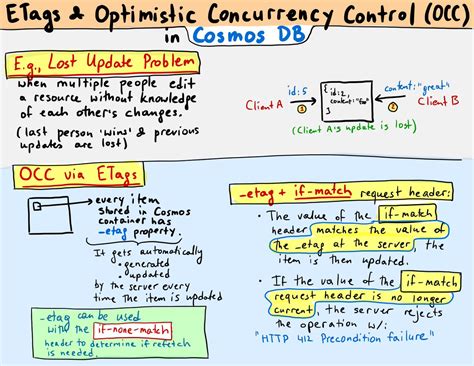 ETags & Optimistic Concurrency Control (OCC)
in Cosmos DB
E.g., Lost Update Problem
when multiple people edit
a resource without knowledge
of each other's changes.
(last person 'wins' & previous
updates are lost)
id: 5
Client A
1
{ id: 2,
content: "foo"
}
content: "great"
2
Client B
(Client A's update is lost)
OCC via ETags
every item
stored in Cosmos
container has
-etag property.
It gets automatically
• generated
• updated
by the server every
time the item is updated
-etag can be used
with the if-none-match
header to determine if refetch
is needed.
-etag + if-match request header:
• The value of the if-match
header matches the value of
the -etag at the server, the
item is then updated.
• If the value of the if-match
request header is no longer
current, the server rejects
the operation w/:
"HTTP 412 Precondition failure"